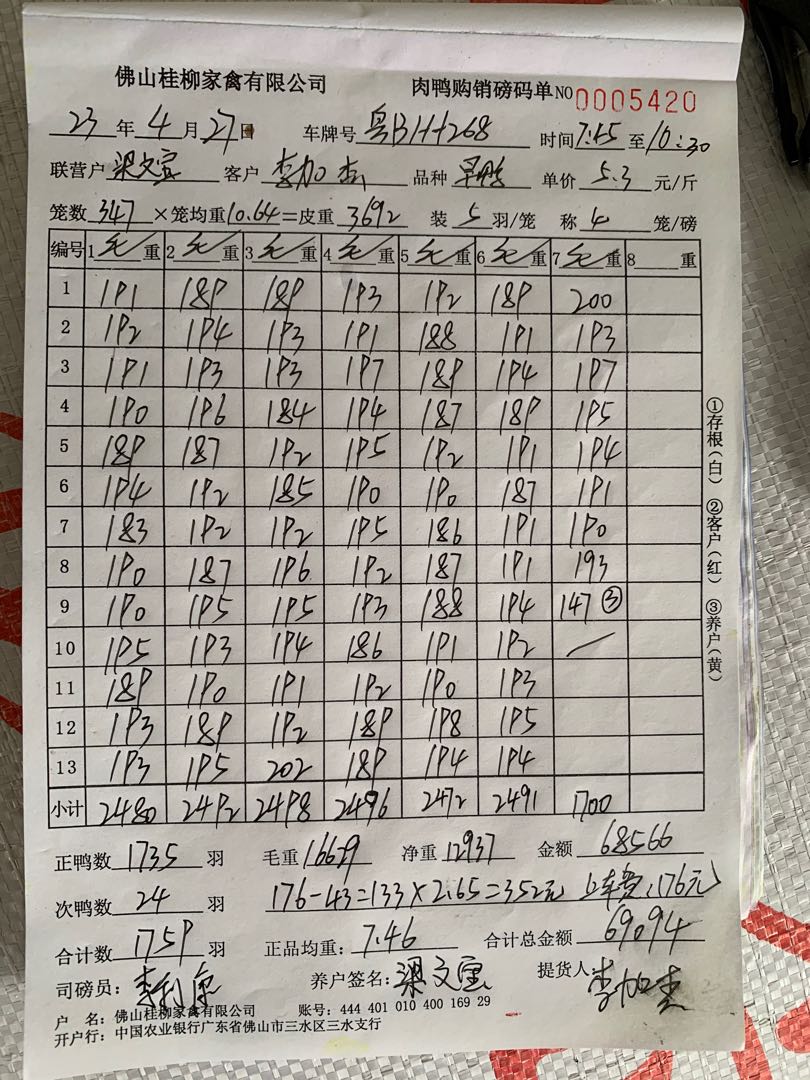 佛山桂柳家禽有限公司 肉鸭购销磅码单 NO 0005420
23 年 4 月 27 日 车牌号 粤BHH268 时间 7:45 至 10:30
联营户 梁文宝 客户 李加杰 品种 旱鸭 单价 5.3 元/斤
笼数 347 ×笼均重 10.64 =皮重 3692 装 5 羽/笼 称 4 笼/磅
编号 1 毛 重 2 毛 重 3 毛 重 4 毛 重 5 毛 重 6 毛 重 7 毛 重 8 重
1 191 189 189 193 192 189 200
2 192 194 193 191 188 191 193
3 191 193 193 197 189 194 197
4 190 196 184 194 187 189 195
5 189 187 192 195 192 191 194
6 194 192 185 190 190 187 191
7 183 192 192 195 186 191 190
8 190 187 196 192 187 191 193
9 190 195 195 193 188 194 147 ③
10 195 193 194 186 191 192 /
11 189 190 191 192 190 193
12 193 189 192 189 198 195
13 193 195 202 189 194 194
小计 2480 2492 2498 2496 2472 2491 1700
正鸭数 1735 羽 毛重 16629 净重 12937 金额 68566
次鸭数 24 羽 176-43=133×2.65=352元 上车费:176元
合计数 1759 羽 正品均重: 7.46 合计总金额 69094
司磅员: 李利康 养户签名: 梁文宝 提货人: 李加杰
户 名: 佛山桂柳家禽有限公司 账号: 444 401 010 400 169 29
开户行: 中国农业银行广东省佛山市三水区三水支行
①存根(白) ②客户(红) ③养户(黄)